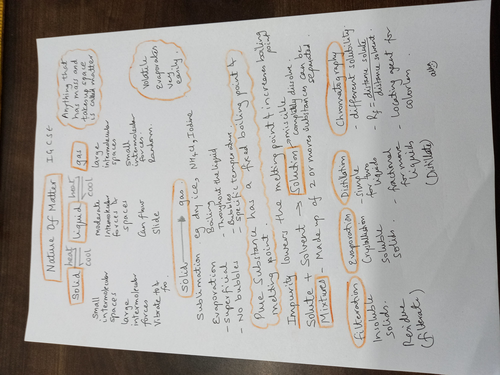 IGCSE
Nature Of Matter
Anything that
has mass and
takes up space
is called matter
Solid heat cool liquid heat cool gas
small
intermolecular
spaces
large
intermolecular
forces
Vibrate to &
fro
moderate
intermolecular
forces &
spaces
can flow
Slide
large
intermolecular
spaces
small
intermolecular
forces.
Random.
Volatile
Evaporates
very
easily.
Solid → gas
Sublimation eg dry ice, NH4Cl, Iodine
Evaporation
- Superficial
- No bubbles
Boiling
- Throughout the liquid
- Bubbles
- Specific temperature
Pure Substance has a fixed boiling point &
melting point.
Impurity lowers the melting point & increase boiling
point
Solute + Solvent → Solution → miscible
completely dissolve.
Mixture - Made up of 2 or more substances can be
separated.
Filteration
Insoluble
solids.
Residue
(filterate)
Evaporation
Crystallisation
Soluble
solids.
Distillation
- Simple
for two
liquids
- fractional
for more
liquids
(Distillate)
Chromatography
- different solubility.
- Rf = distance solute
distance solvent.
- Locating agent for
colorless.